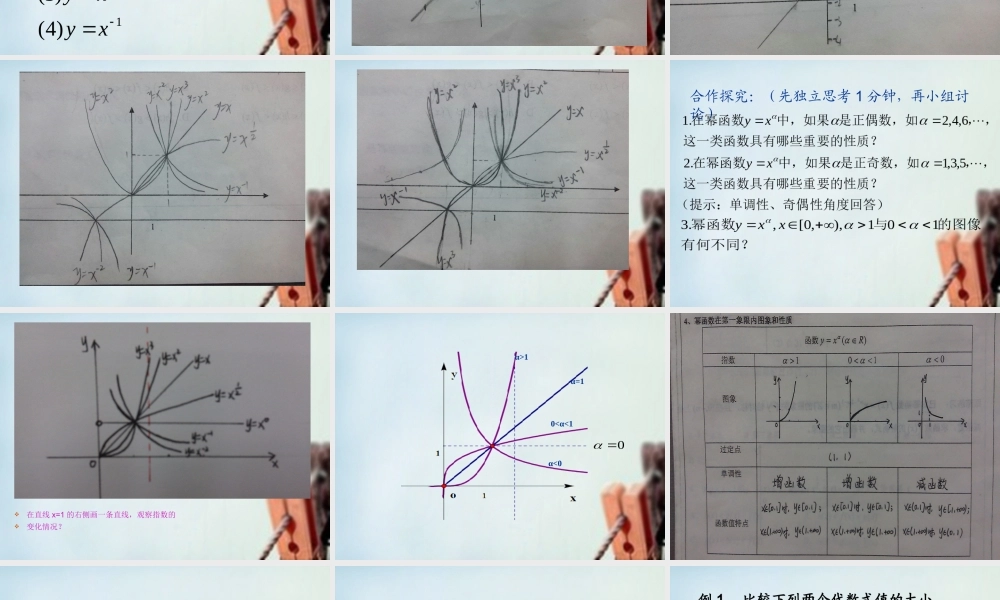 (4) y = x⁻¹
y=x²
y=x⁻²
y=x³
y=x²
y=x
y=x^{1/2}
y=x⁻¹
1
1
y=x⁻²
y=x⁻¹
y=x²
y=x³
y=x²
y=x
y=x^{1/2}
y=x⁻¹
y=x⁻¹
1
y=x³
合作探究:(先独立思考 1 分钟,再小组讨
论)
1.在幂函数y = x^α中,如果α是正偶数,如α = 2,4,6,···,
这一类函数具有哪些重要的性质?
2.在幂函数y = x^α中,如果α是正奇数,如α = 1,3,5,···,
这一类函数具有哪些重要的性质?
(提示:单调性、奇偶性角度回答)
3.幂函数y = x^α, x∈[0,+∞), α > 1与0 < α < 1的图像
有何不同?
y
y=x³
y=x²
y=x
y=x^{1/2}
y=x⁰
y=x⁻¹
y=x⁻²
0
x
在直线 x=1 的右侧画一条直线,观察指数的
变化情况?
α>1
y
α=1
0<α<1
α = 0
1
α<0
o
1
x
4、幂函数在第一象限内图象和性质
函数 y = x^α (α∈R)
指数 α > 1 0 < α < 1 α < 0
图象
过定点 (1, 1)
单调性 增函数 增函数 减函数
函数值特点 x∈[0,1]时, y∈[0,1]; x∈[0,1]时, y∈[0,1]; x∈(0,1]时, y∈[1,+∞);
x∈(1,+∞)时, y∈(1,+∞) x∈(1,+∞)时, y∈(1,+∞) x∈(1,+∞)时, y∈(0,1)
例 1 比较下列两个代数式值的大小